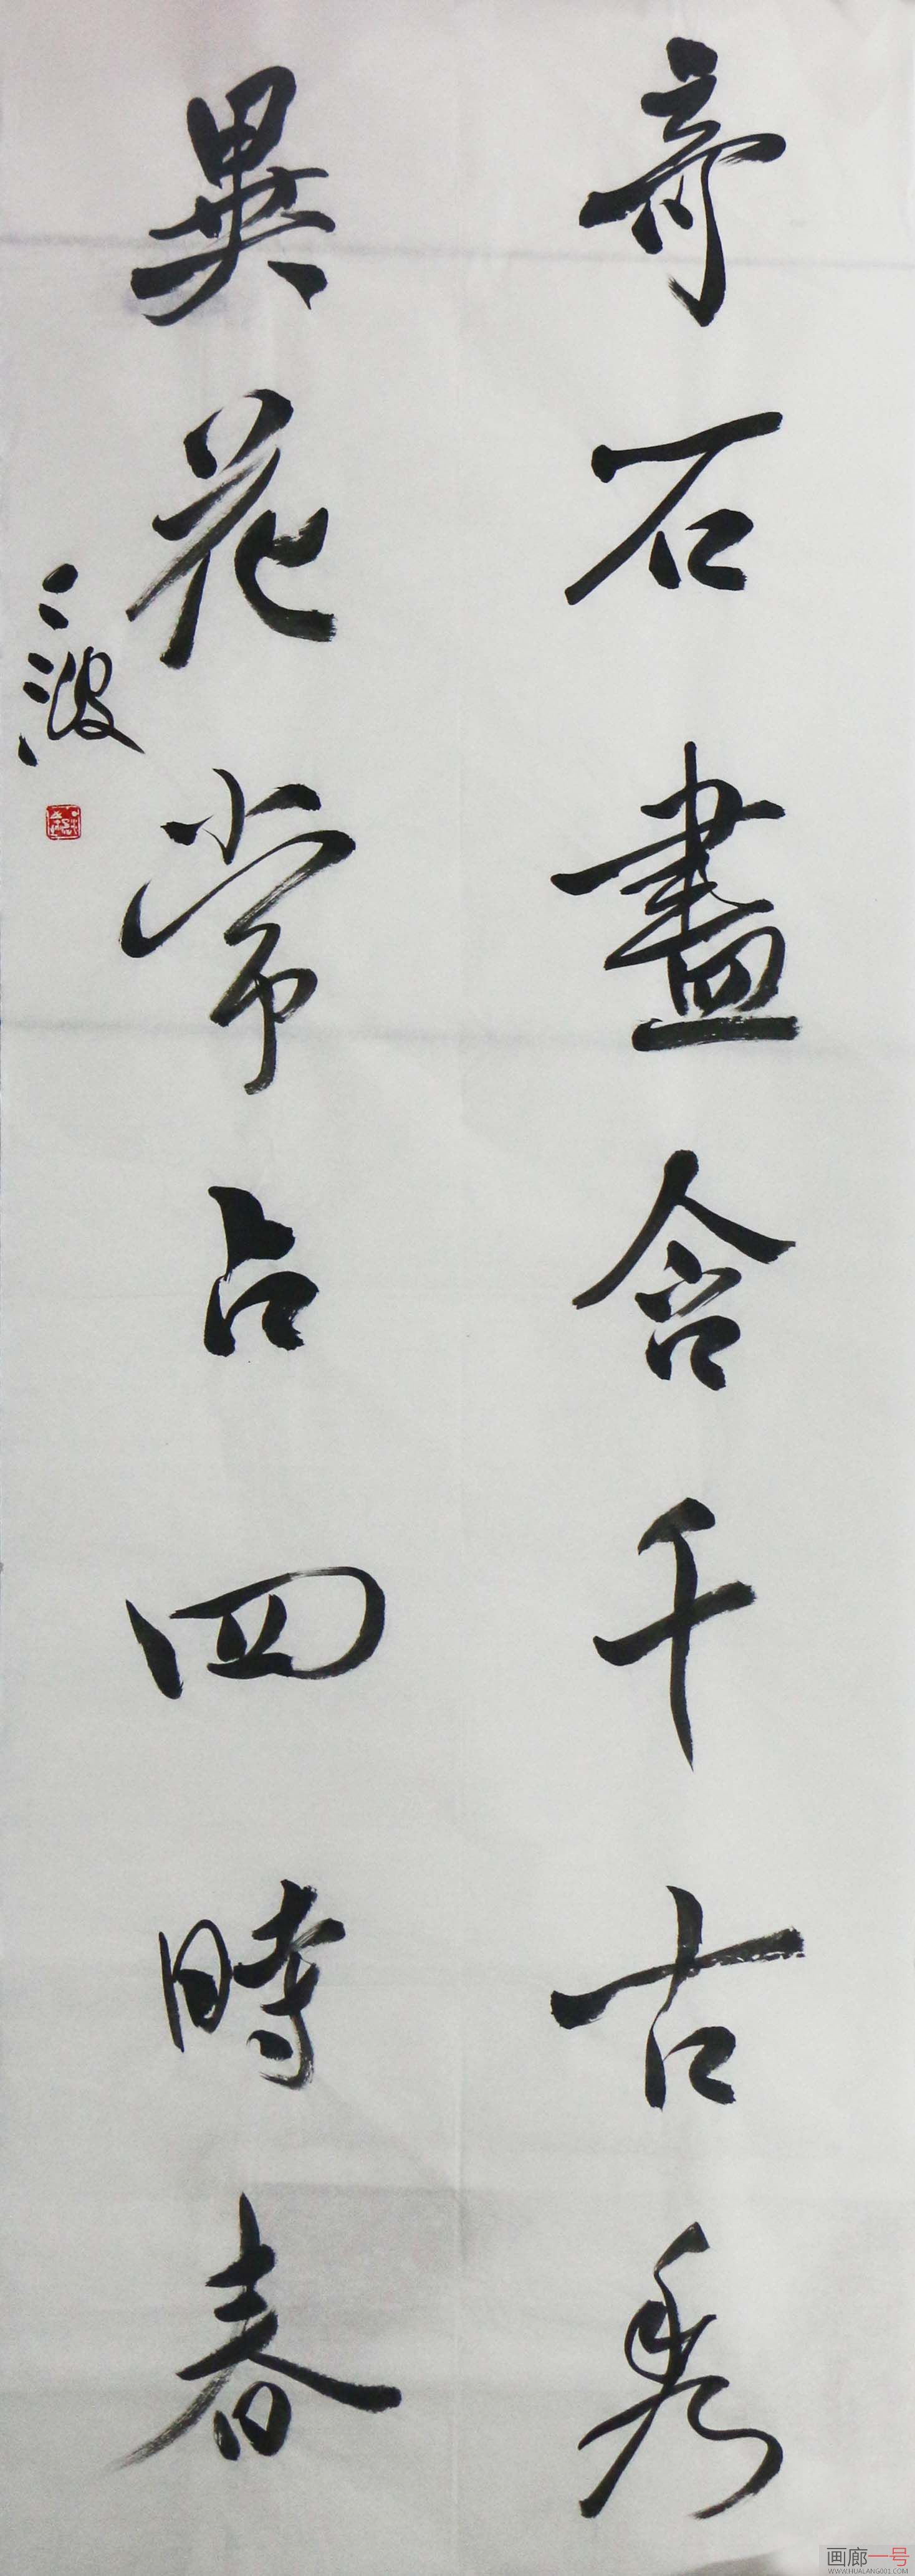 奇石盡含千古秀
異花常占四時春
三波
画廊一号
WWW.HUALANG001.COM